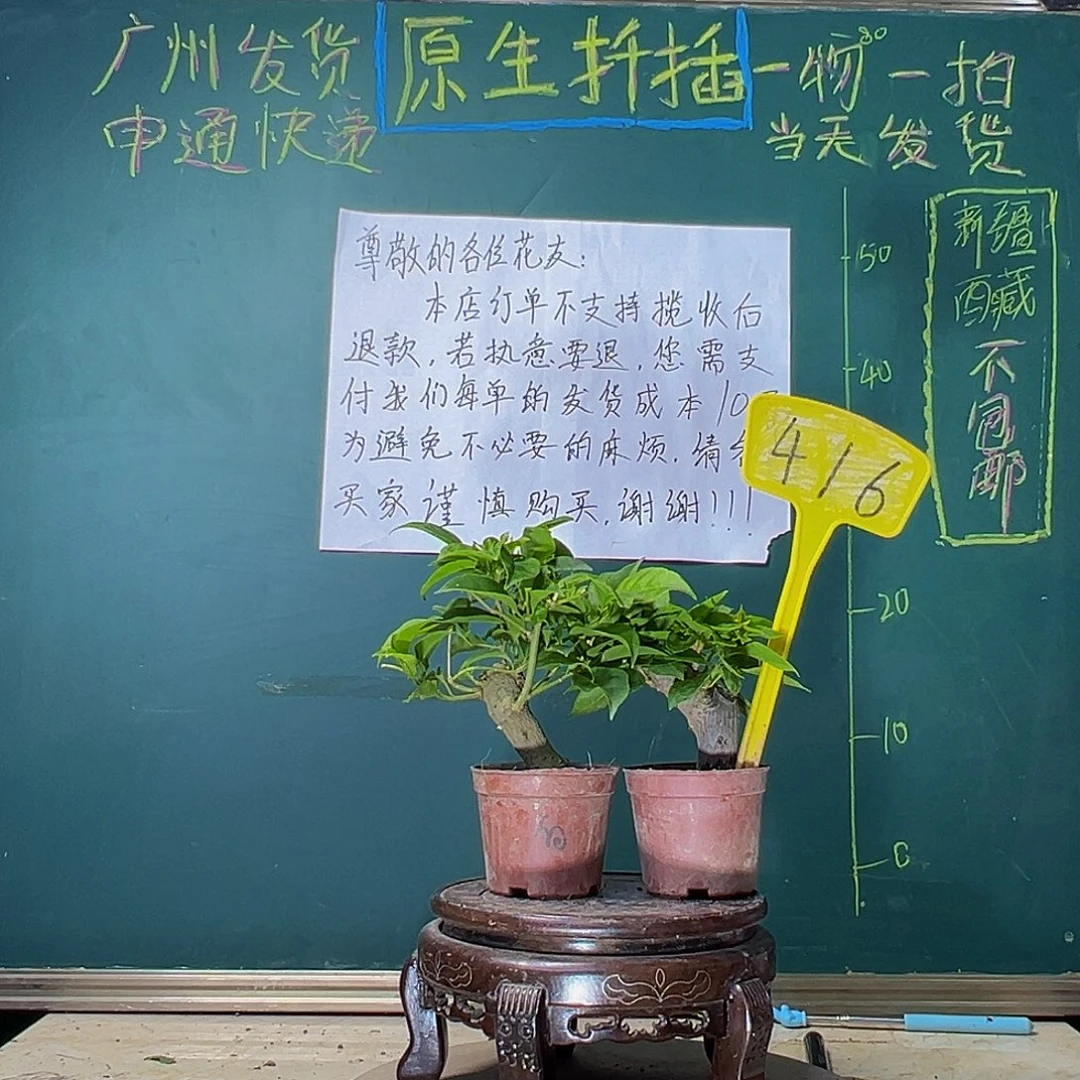 广州发货
申通快递
原生扦插
一物一拍
当天发货
尊敬的各位花友:
本店订单不支持揽收后
退款,若执意要退,您需支
付我们每单的发货成本10
为避免不必要的麻烦,请
买家谨慎购买,谢谢!!!
416
50
40
20
10
0
新疆
西藏
不包邮